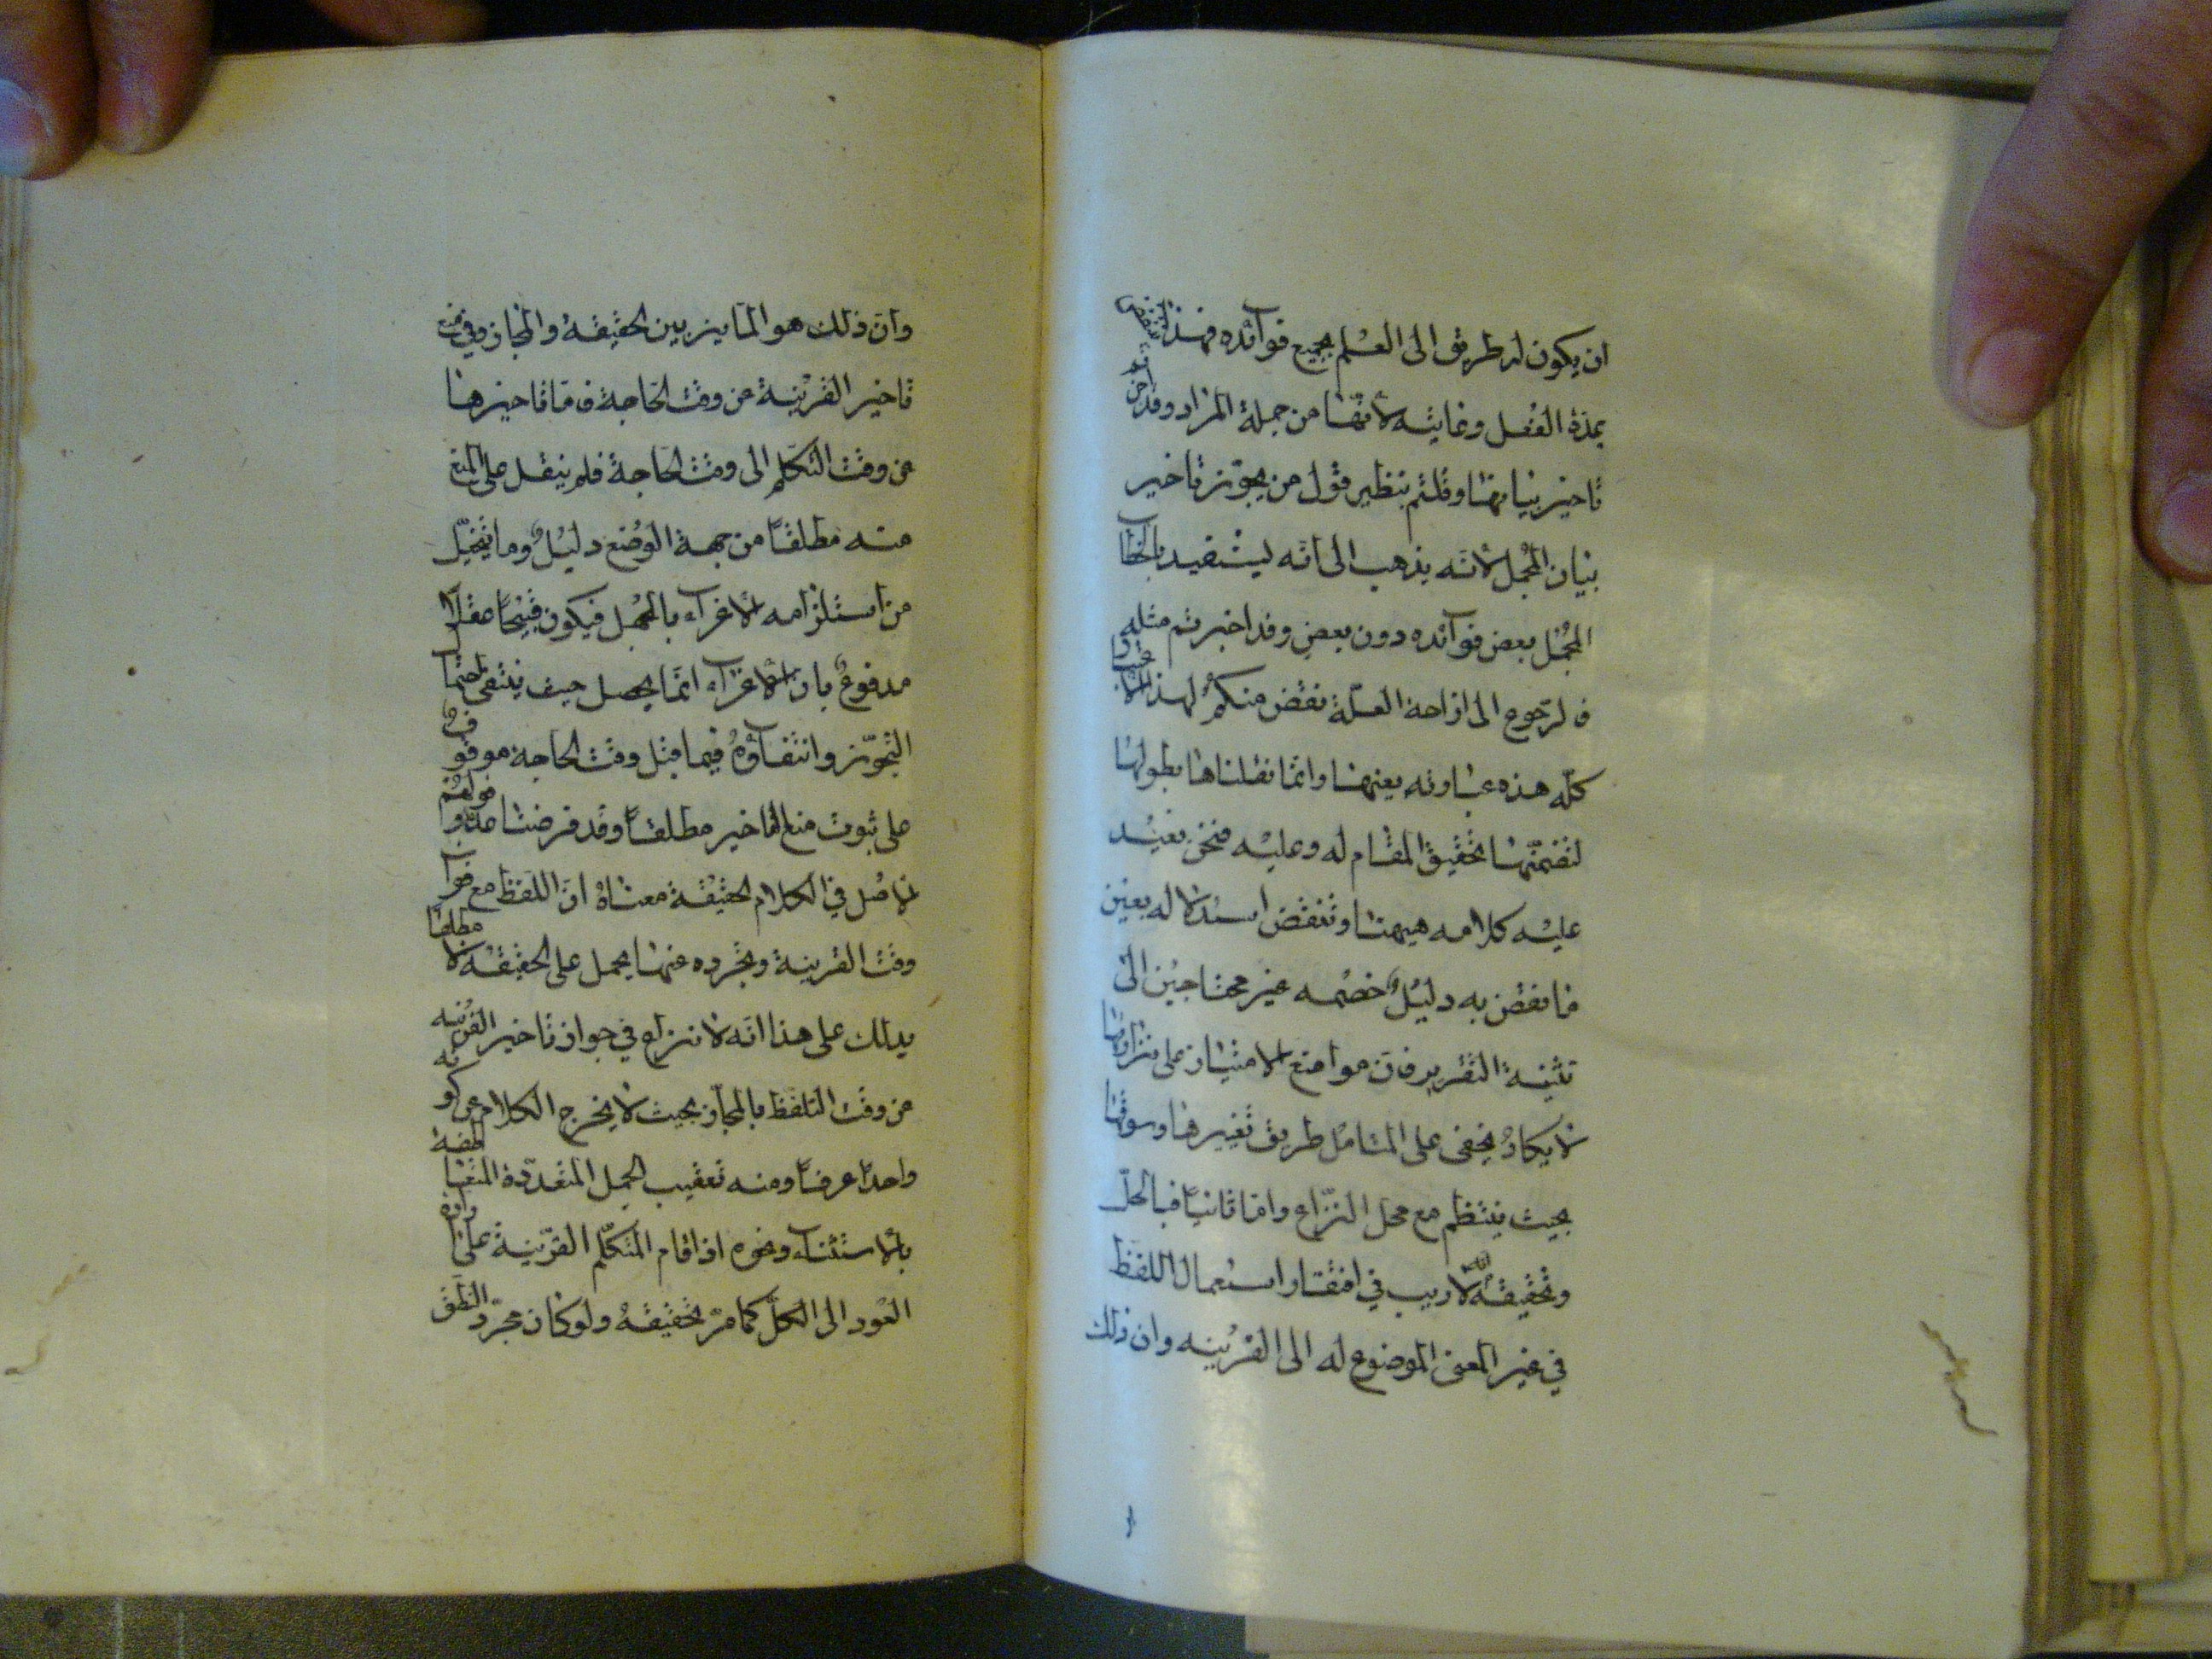 ان يكون له طريق الى العلم بجميع فوائده فهذا ينتقض
بمدة الفعل وغايته لانها من جملة المراد وقد اجزتم
تاخير بيانها وقلتم بنظير قول من يجوّز تاخير
بيان المجمل لانه يذهب الى انه يستفيد بالخطاب
المجمل بعض فوائده دون بعض وقد اجزتم مثله
فالرجوع الى ازاحة العلة نقض منكم لهذا الاعتبار
كلّه هذه عبارته بعينها وانما نقلناها بطولها
لتضمنها تحقيق المقام له وعليه فنحن نعيد
عليه كلامه هيهنا وننقض استدلاله بعين
ما نقض به دليل خصمه غير محتاجين الى
تثنية التقرير فان مواضع الامتياز على نزارتها
لا يكاد يخفى على المتامل طريق تغييرها وسوقها
بحيث ينتظم مع محل النزاع واما ثانيا فبالحلّ
وتحقيقه انه لا ريب في افتقار استعمال اللفظ
في غير المعنى الموضوع له الى القرينه وان ذلك
وان ذلك هو المايز بين الحقيقة والمجاز وفي منع
تاخير القرينة عن وقت الحاجة فاما تاخيرها
عن وقت التكلم الى وقت الحاجة فلم ينقل على المنع
منه مطلقا من جهة الوضع دليل وما يتخيّل
من استلزامه الاغراء بالجهل فيكون قبيحا عقلا
مدفوع بان الاغراء انما يحصل حيث ينتفى احتمال
التجوّز وانتفاؤه فيما قبل وقت الحاجة موقوف
على ثبوت منع التاخير مطلقا وقد فرضنا عدمه وقولهم
الاصل في الكلام الحقيقة معناه ان اللفظ مع فوات
وقت القرينة وتجرده عنها يحمل على الحقيقة لا مطلقا
يدلك على هذا انه لا نزاع في جواز تاخير القرينه
عن وقت التلفظ بالمجاز بحيث لا يخرج الكلام عن كونه
واحدا عرفا ومنه تعقيب الجمل المتعددة المتعاطفة
بالاستثناء ونحوه اذا اقام المتكلم القرينة على ارادة
العود الى الكلّ كما مرّ تحقيقه ولو كان مجرّد النطق